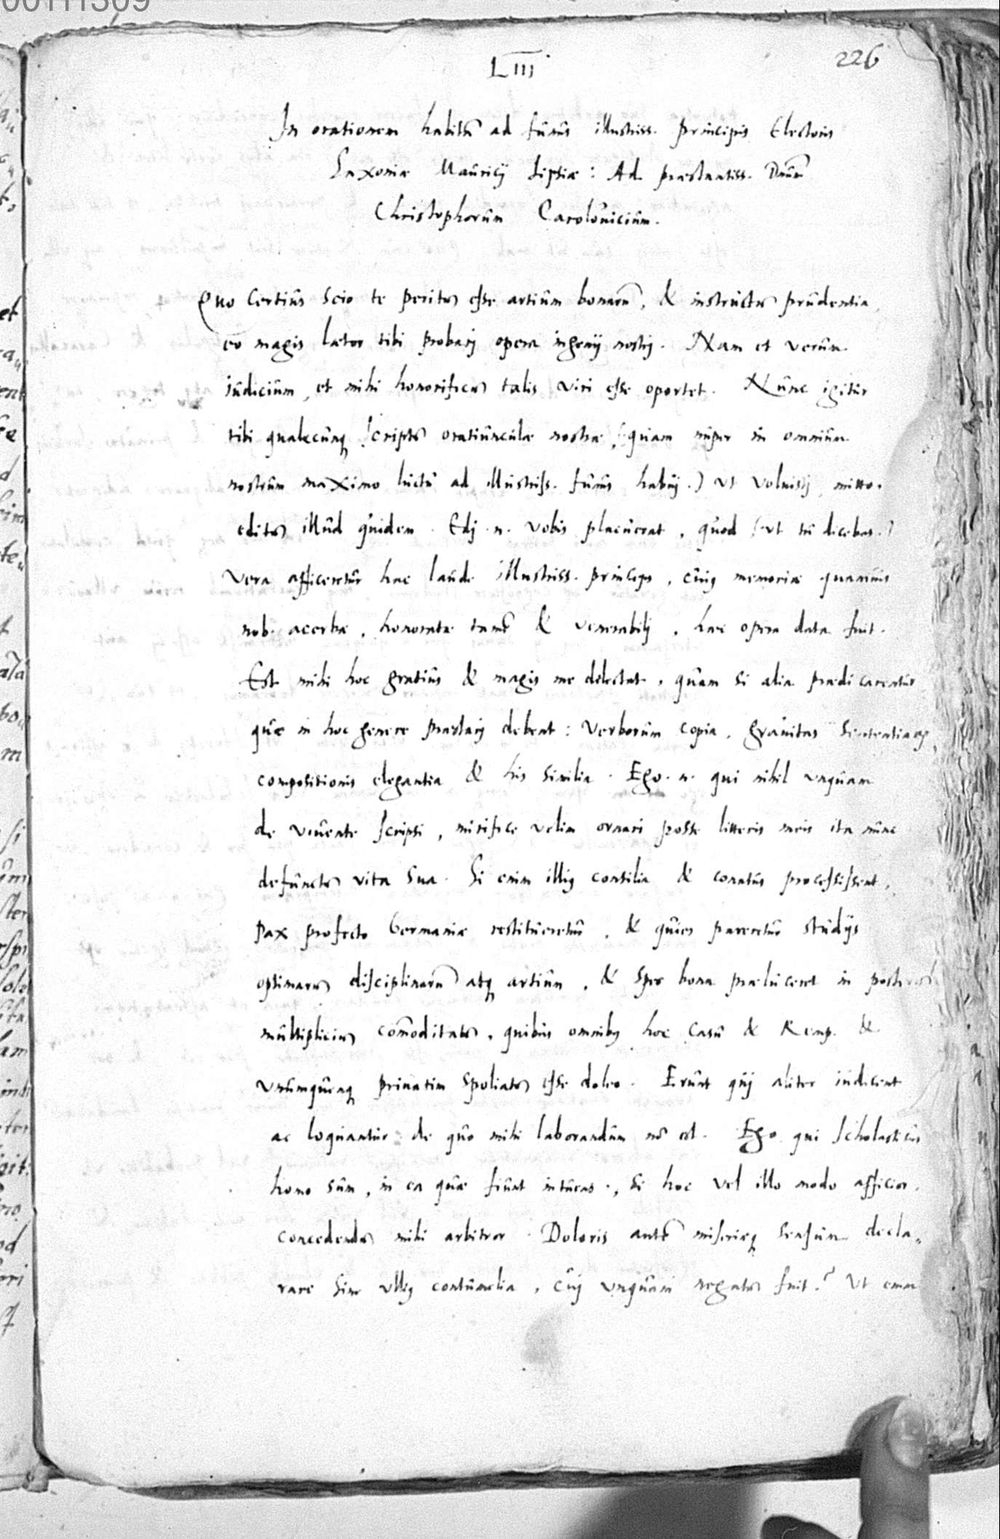 00111309
LIII
226
In orationem habitã ad funus illustriss. principis Electoris
Saxoniæ Mauricij Lipsiæ: Ad præstantiss. Dnũm
Christophorũm Carolouiciũm.
Quo Certiũs scio te peritũ esse artiũm bonarũ, & instructũ prũdentia,
eo magis lætor tibi probari opera ingenij nostri. Nam et verũm
iũdiciũm, et mihi honorificũ talis viri esse oportet. Nũnc igitũr
tibi qualecũnq scriptũ oratiũnculæ nostræ (quam nũper in omniũm
nostrũm maximo lũctũ ad illustriss. funus habui.) ut voluisti mitto.
editũ illũd quidem. Edi .n. vobis placũerat, quod (ut tũ dicebas.)
vera afficeretũr hac laũde illustriss. princeps, cũiq memoriæ quamũis
nobis acerbæ, honoratæ tamẽ & venerabili, hæc opera data fuit.
Est mihi hoc gratiũs & magis me delectat, quam si alia prædicarentur
quæ in hoc genere præstari debent: verborũm copia, grauitas sententiarũ,
compositionis elegantia & his similia. Ego .n. qui nihil unquam
de viũente scripsi, mirifice velim ornari posse litteris meis ita nũnc
defũnctũ vita sua. Si enim illiq consilia & conatũs processissent,
pax profecto Germaniæ restitũeretũr, & quies pareretũr stũdijs
optimarũ disciplinarũ atq artiũm, & spes bona præluceret in posteros
mũltipliciũ com̃oditatũ, quibũs omnibq hoc casũ & Remp. &
unũmquẽnq priuatim spoliatũ esse doleo. Erũnt qui aliter iũdicent
ac loquantũr de quo mihi laborandũm nõ est. Ego qui scholasticũs
homo sũm, in ea quæ fiũnt intũens, si hoc vel illo modo afficior,
concedendũ mihi arbitror. Doloris autẽ miseriæq sensũm decla„
rare sine ulliq contũmelia, cũi unquam negatũ fuit? Ut enim